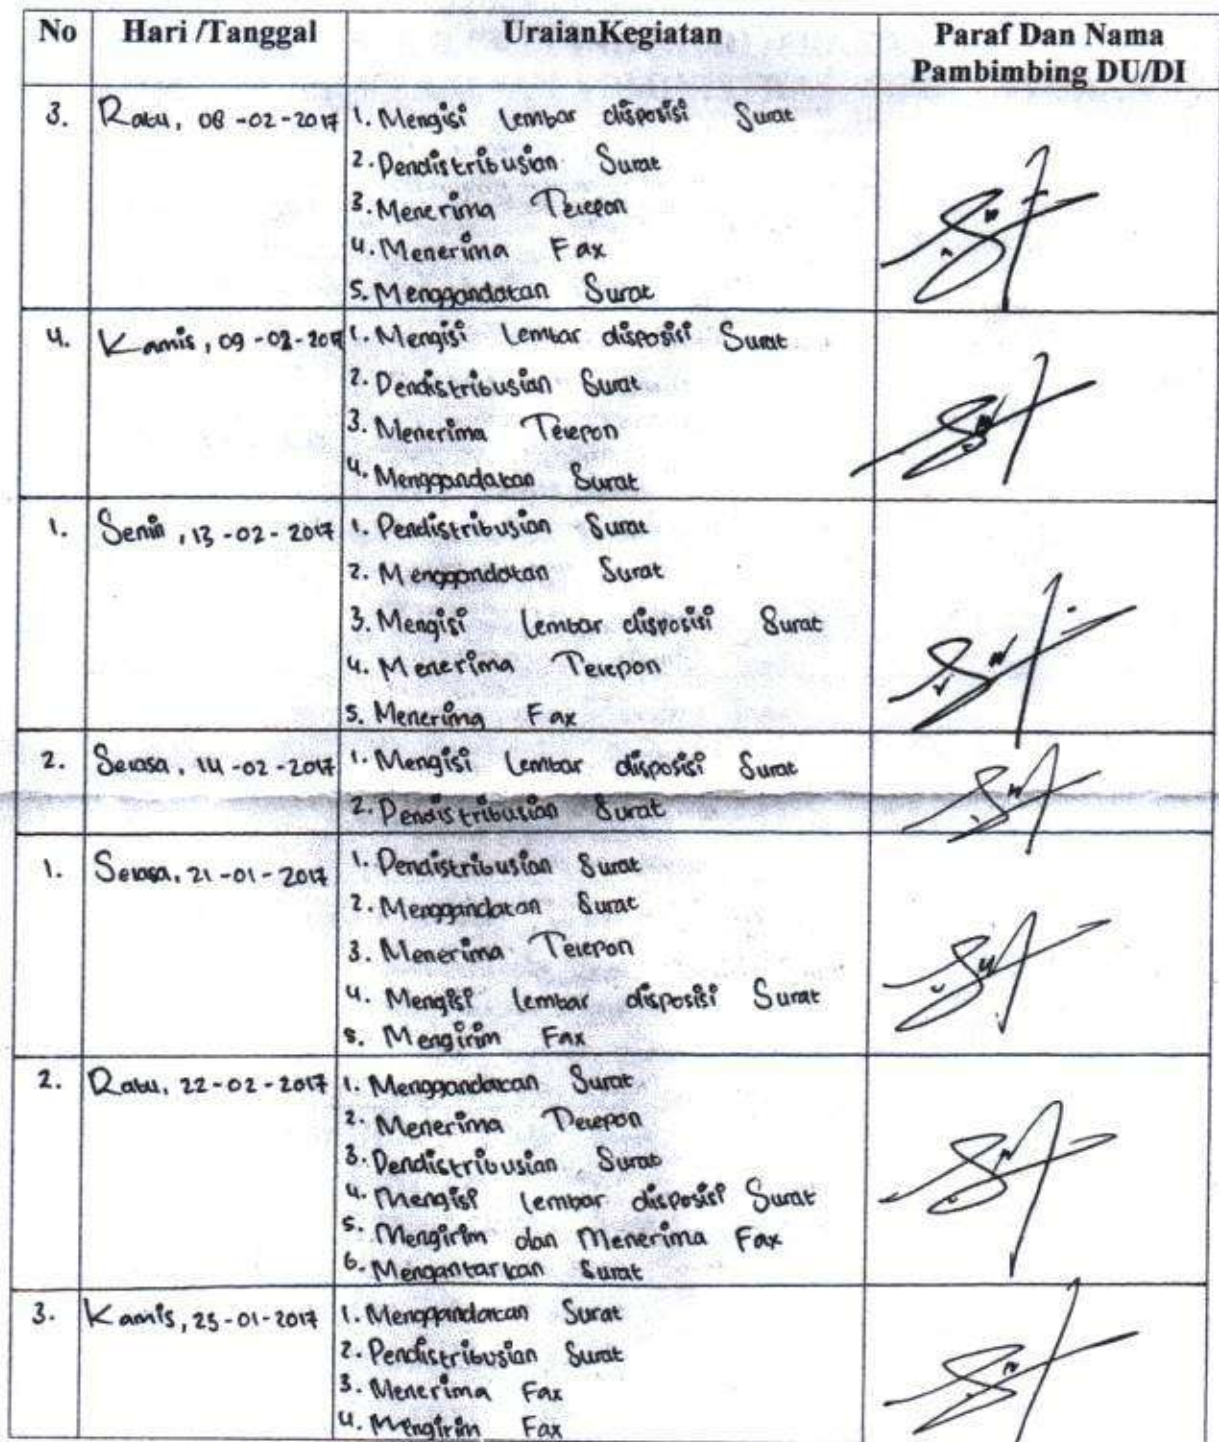 No Hari /Tanggal UraianKegiatan Paraf Dan Nama
Pambimbing DU/DI
3. Rabu, 08-02-2017 1. Mengisi lembar disposisi Surat
2. Pendistribusian Surat
3. Menerima Telepon
4. Menerima Fax
5. Menggandakan Surat
4. Kamis, 09-02-2017 1. Mengisi lembar disposisi Surat
2. Pendistribusian Surat
3. Menerima Telepon
4. Menggandakan Surat
1. Senin, 13-02-2017 1. Pendistribusian Surat
2. Menggandakan Surat
3. Mengisi lembar disposisi Surat
4. Menerima Telepon
5. Menerima Fax
2. Selasa, 14-02-2017 1. Mengisi lembar disposisi Surat
2. Pendistribusian Surat
1. Selasa, 21-01-2017 1. Pendistribusian Surat
2. Menggandakan Surat
3. Menerima Telepon
4. Mengisi lembar disposisi Surat
5. Mengirim Fax
2. Rabu, 22-02-2017 1. Menggandakan Surat
2. Menerima Telepon
3. Pendistribusian Surat
4. Mengisi lembar disposisi Surat
5. Mengirim dan Menerima Fax
6. Mengantarkan Surat
3. Kamis, 23-01-2017 1. Menggandakan Surat
2. Pendistribusian Surat
3. Menerima Fax
4. Mengirim Fax